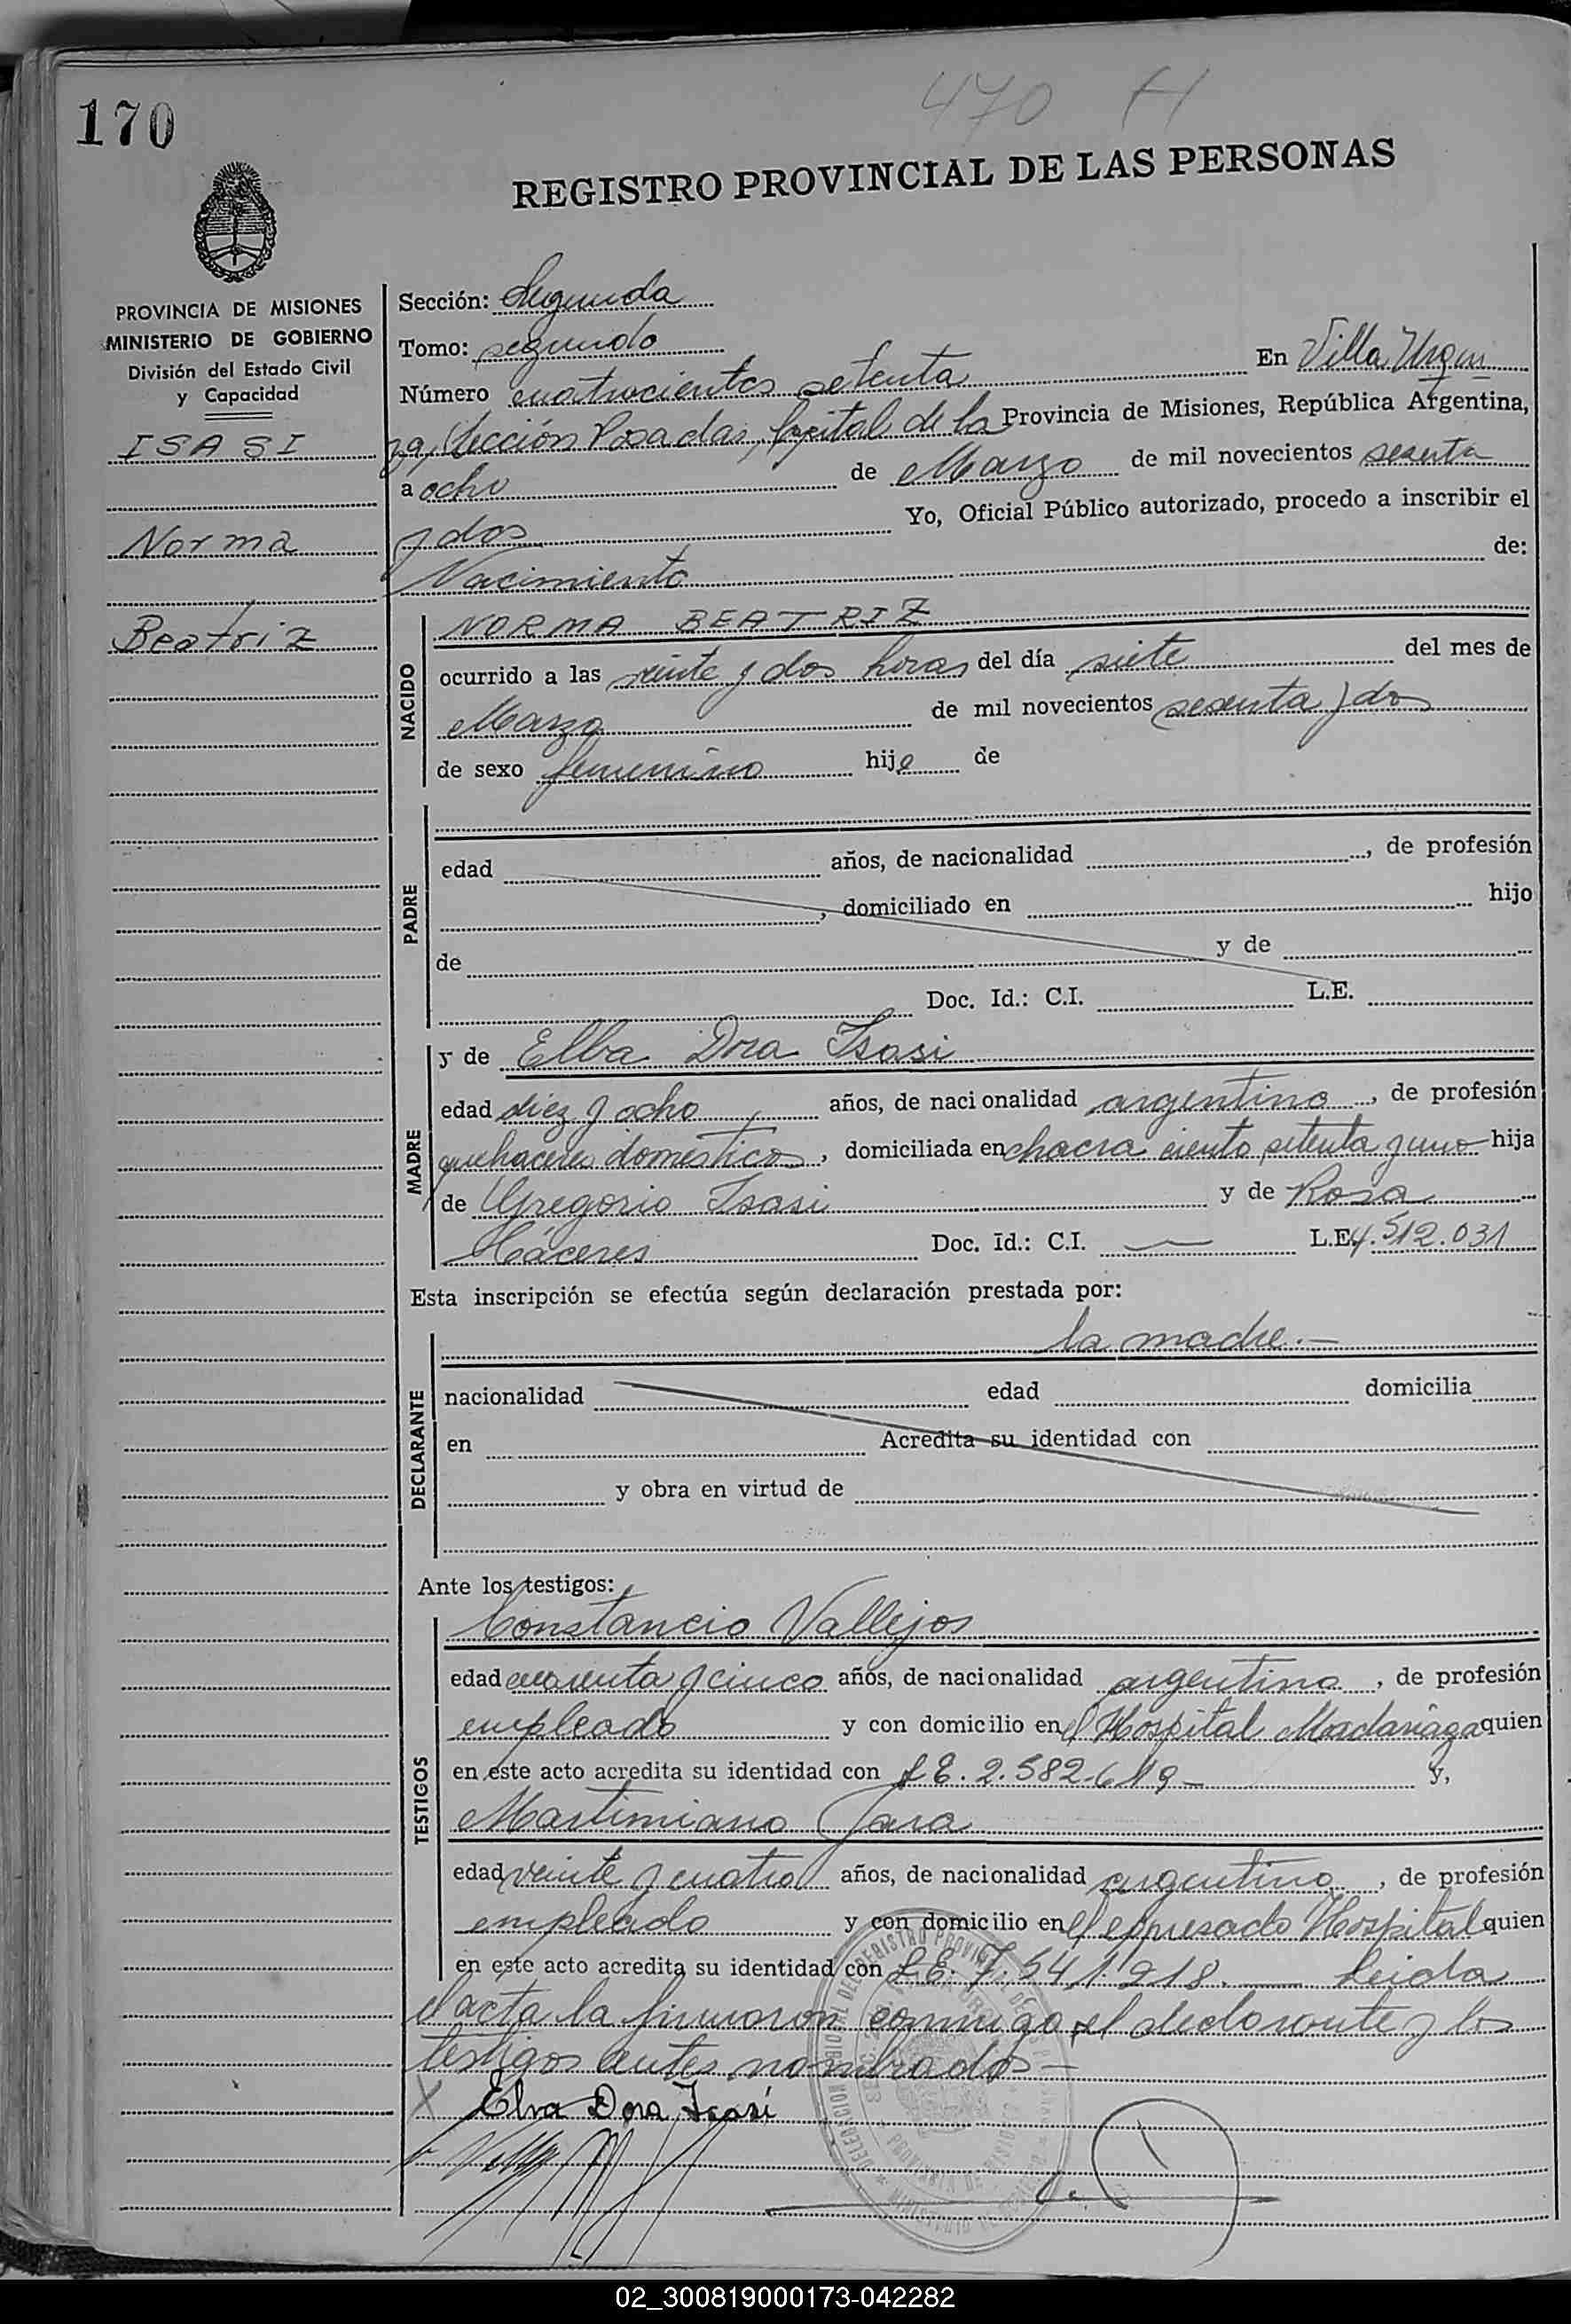 470 H
170
REGISTRO PROVINCIAL DE LAS PERSONAS
PROVINCIA DE MISIONES
MINISTERIO DE GOBIERNO
División del Estado Civil
y Capacidad
ISASI
Norma
Beatriz
Sección: Segunda
Tomo: segundo
Número cuatrocientos setenta En Villa Urqui
za, Sección Posadas, Capital de la Provincia de Misiones, República Argentina,
a ocho de Marzo de mil novecientos sesenta
y dos Yo, Oficial Público autorizado, procedo a inscribir el
Nacimiento de:
NACIDO
NORMA BEATRIZ
ocurrido a las veinte y dos horas del día siete del mes de
Marzo de mil novecientos sesenta y dos
de sexo femenino hija de
PADRE
edad años, de nacionalidad , de profesión
, domiciliado en hijo
de y de
Doc. Id.: C.I. L.E.
MADRE
y de Elba Dora Isasi
edad diez y ocho años, de nacionalidad argentina, de profesión
quehaceres domésticos, domiciliada en chacra ciento setenta y uno hija
de Gregorio Isasi y de Rosa
Cáceres Doc. Id.: C.I. — L.E. 4.512.031
Esta inscripción se efectúa según declaración prestada por:
la madre.—
DECLARANTE
nacionalidad edad domicilia
en Acredita su identidad con
y obra en virtud de
Ante los testigos:
TESTIGOS
Constancio Vallejos
edad cuarenta y cinco años, de nacionalidad argentina, de profesión
empleado y con domicilio en el Hospital Madariaga quien
en este acto acredita su identidad con L.E. 2.582.619 — y,
Martimiano Jara
edad veinte y cuatro años, de nacionalidad argentina, de profesión
empleado y con domicilio en el expresado Hospital quien
en este acto acredita su identidad con L.E. 7.541.218. — Leida
el acta la firmaron conmigo, el declarante y los
testigos antes nombrados —
X Elva Dora Isasi
02_300819000173-042282